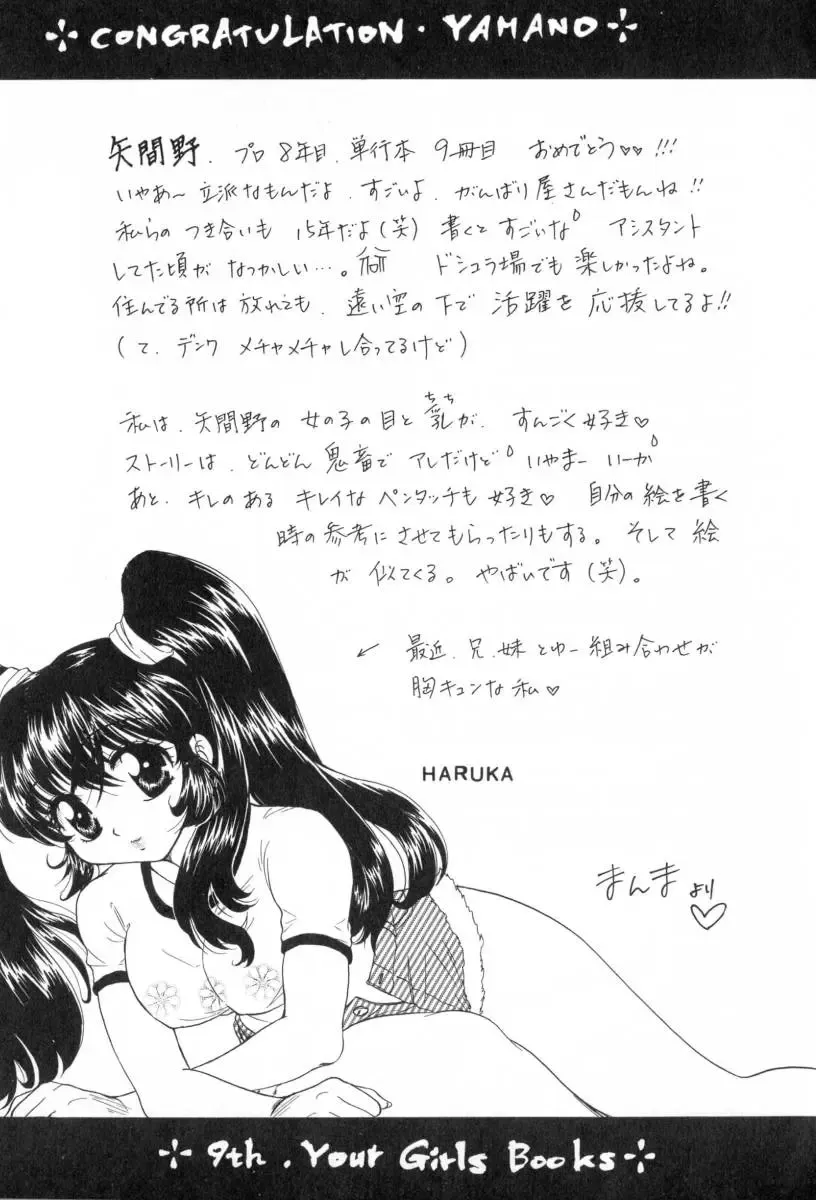 CONGRATULATION・YAMANO
矢間野、プロ8年目、単行本 9冊目 おめでとう♡♡!!!
いやあ〜立派なもんだよ、すごいよ、がんばり屋さんだもんね!!
私らのつき合いも 15年だよ(笑) 書くと すごいな アシスタント
してた頃が なつかしい…。 ドシュラ場でも 楽しかったよね。
住んでる所は 放れても、遠い空の下で 活躍を 応援してるよ!!
(て、デンワ メチャメチャし合ってるけど)
私は、矢間野の 女の子の目と 乳が、すんごく好き♡
ちち
ストーリーは、どんどん 鬼畜で アレだけど いやまー いーか
あと、キレのある キレイな ペンタッチも 好き♡ 自分の絵を書く
時の参考に させてもらったりもする。そして 絵
が 似てくる。やばいです(笑)。
← 最近、兄、妹とゆー組み合わせが
胸キュンな私♡
HARUKA
まんまより♡
9th. Your Girls Books